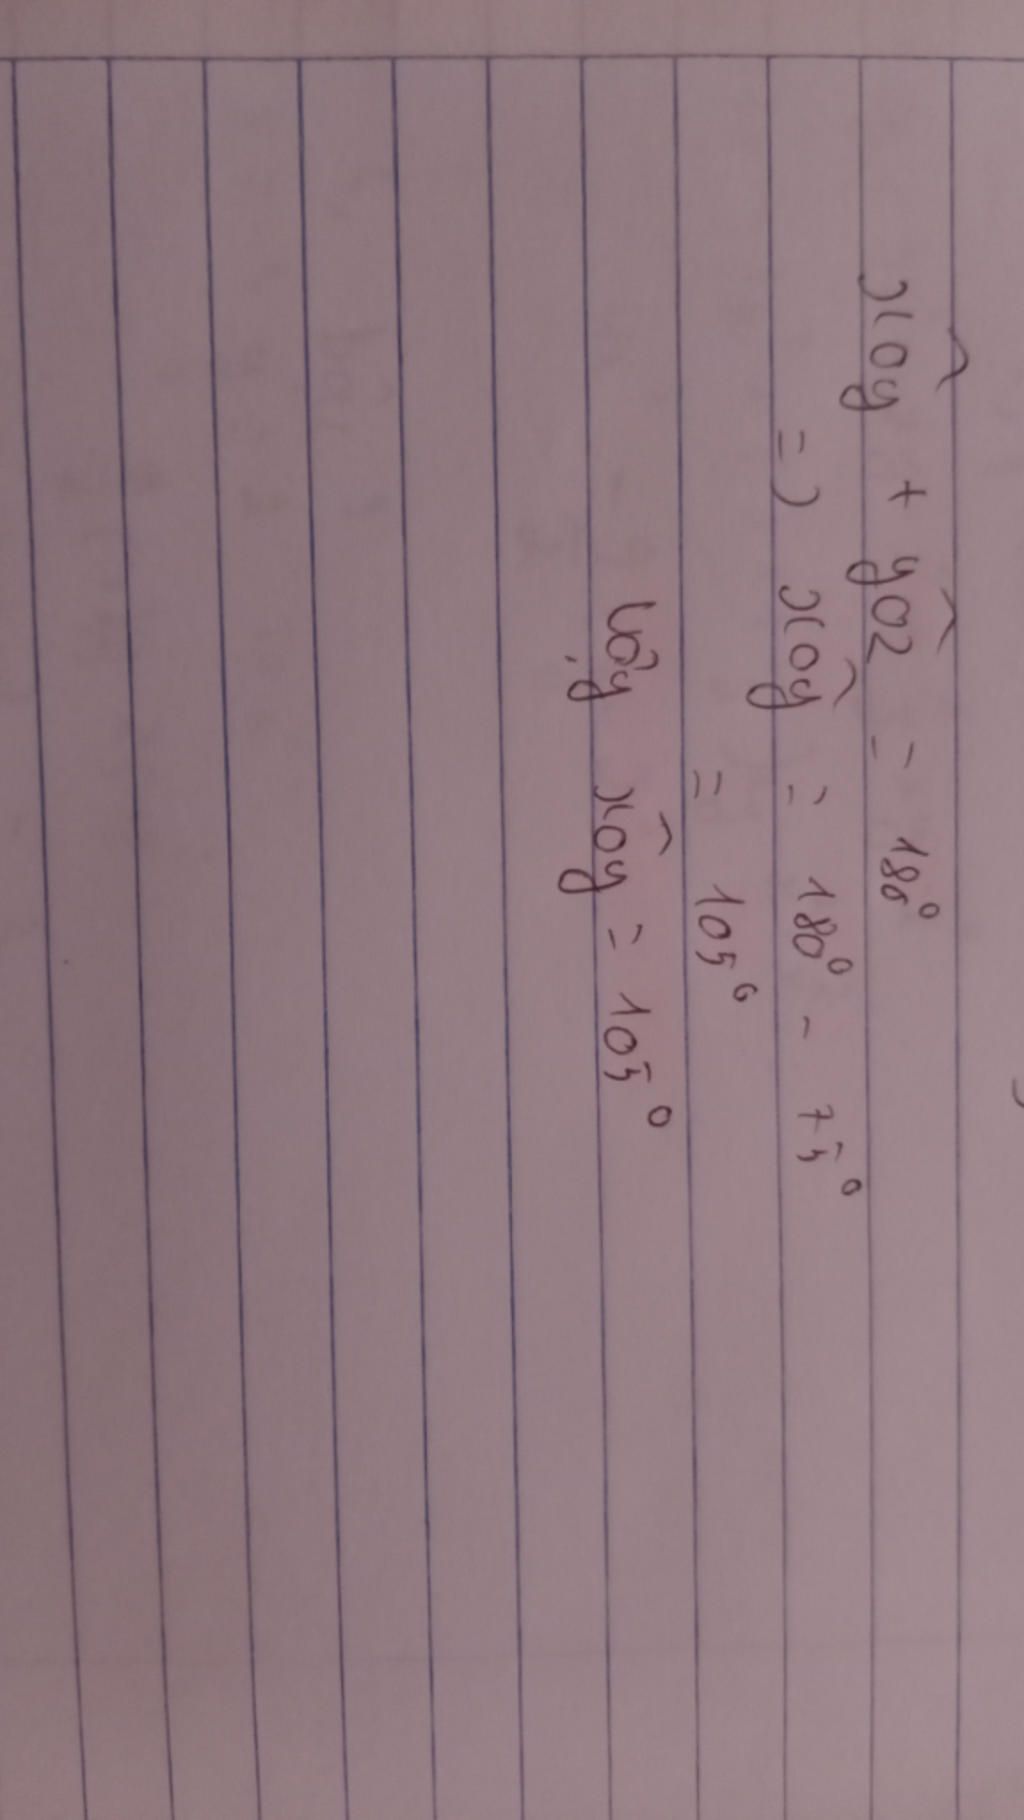 x̂oy + ŷoz = 180⁰
=) x̂oy = 180⁰ - 75⁰
= 105⁰
Vậy x̂oy = 105⁰